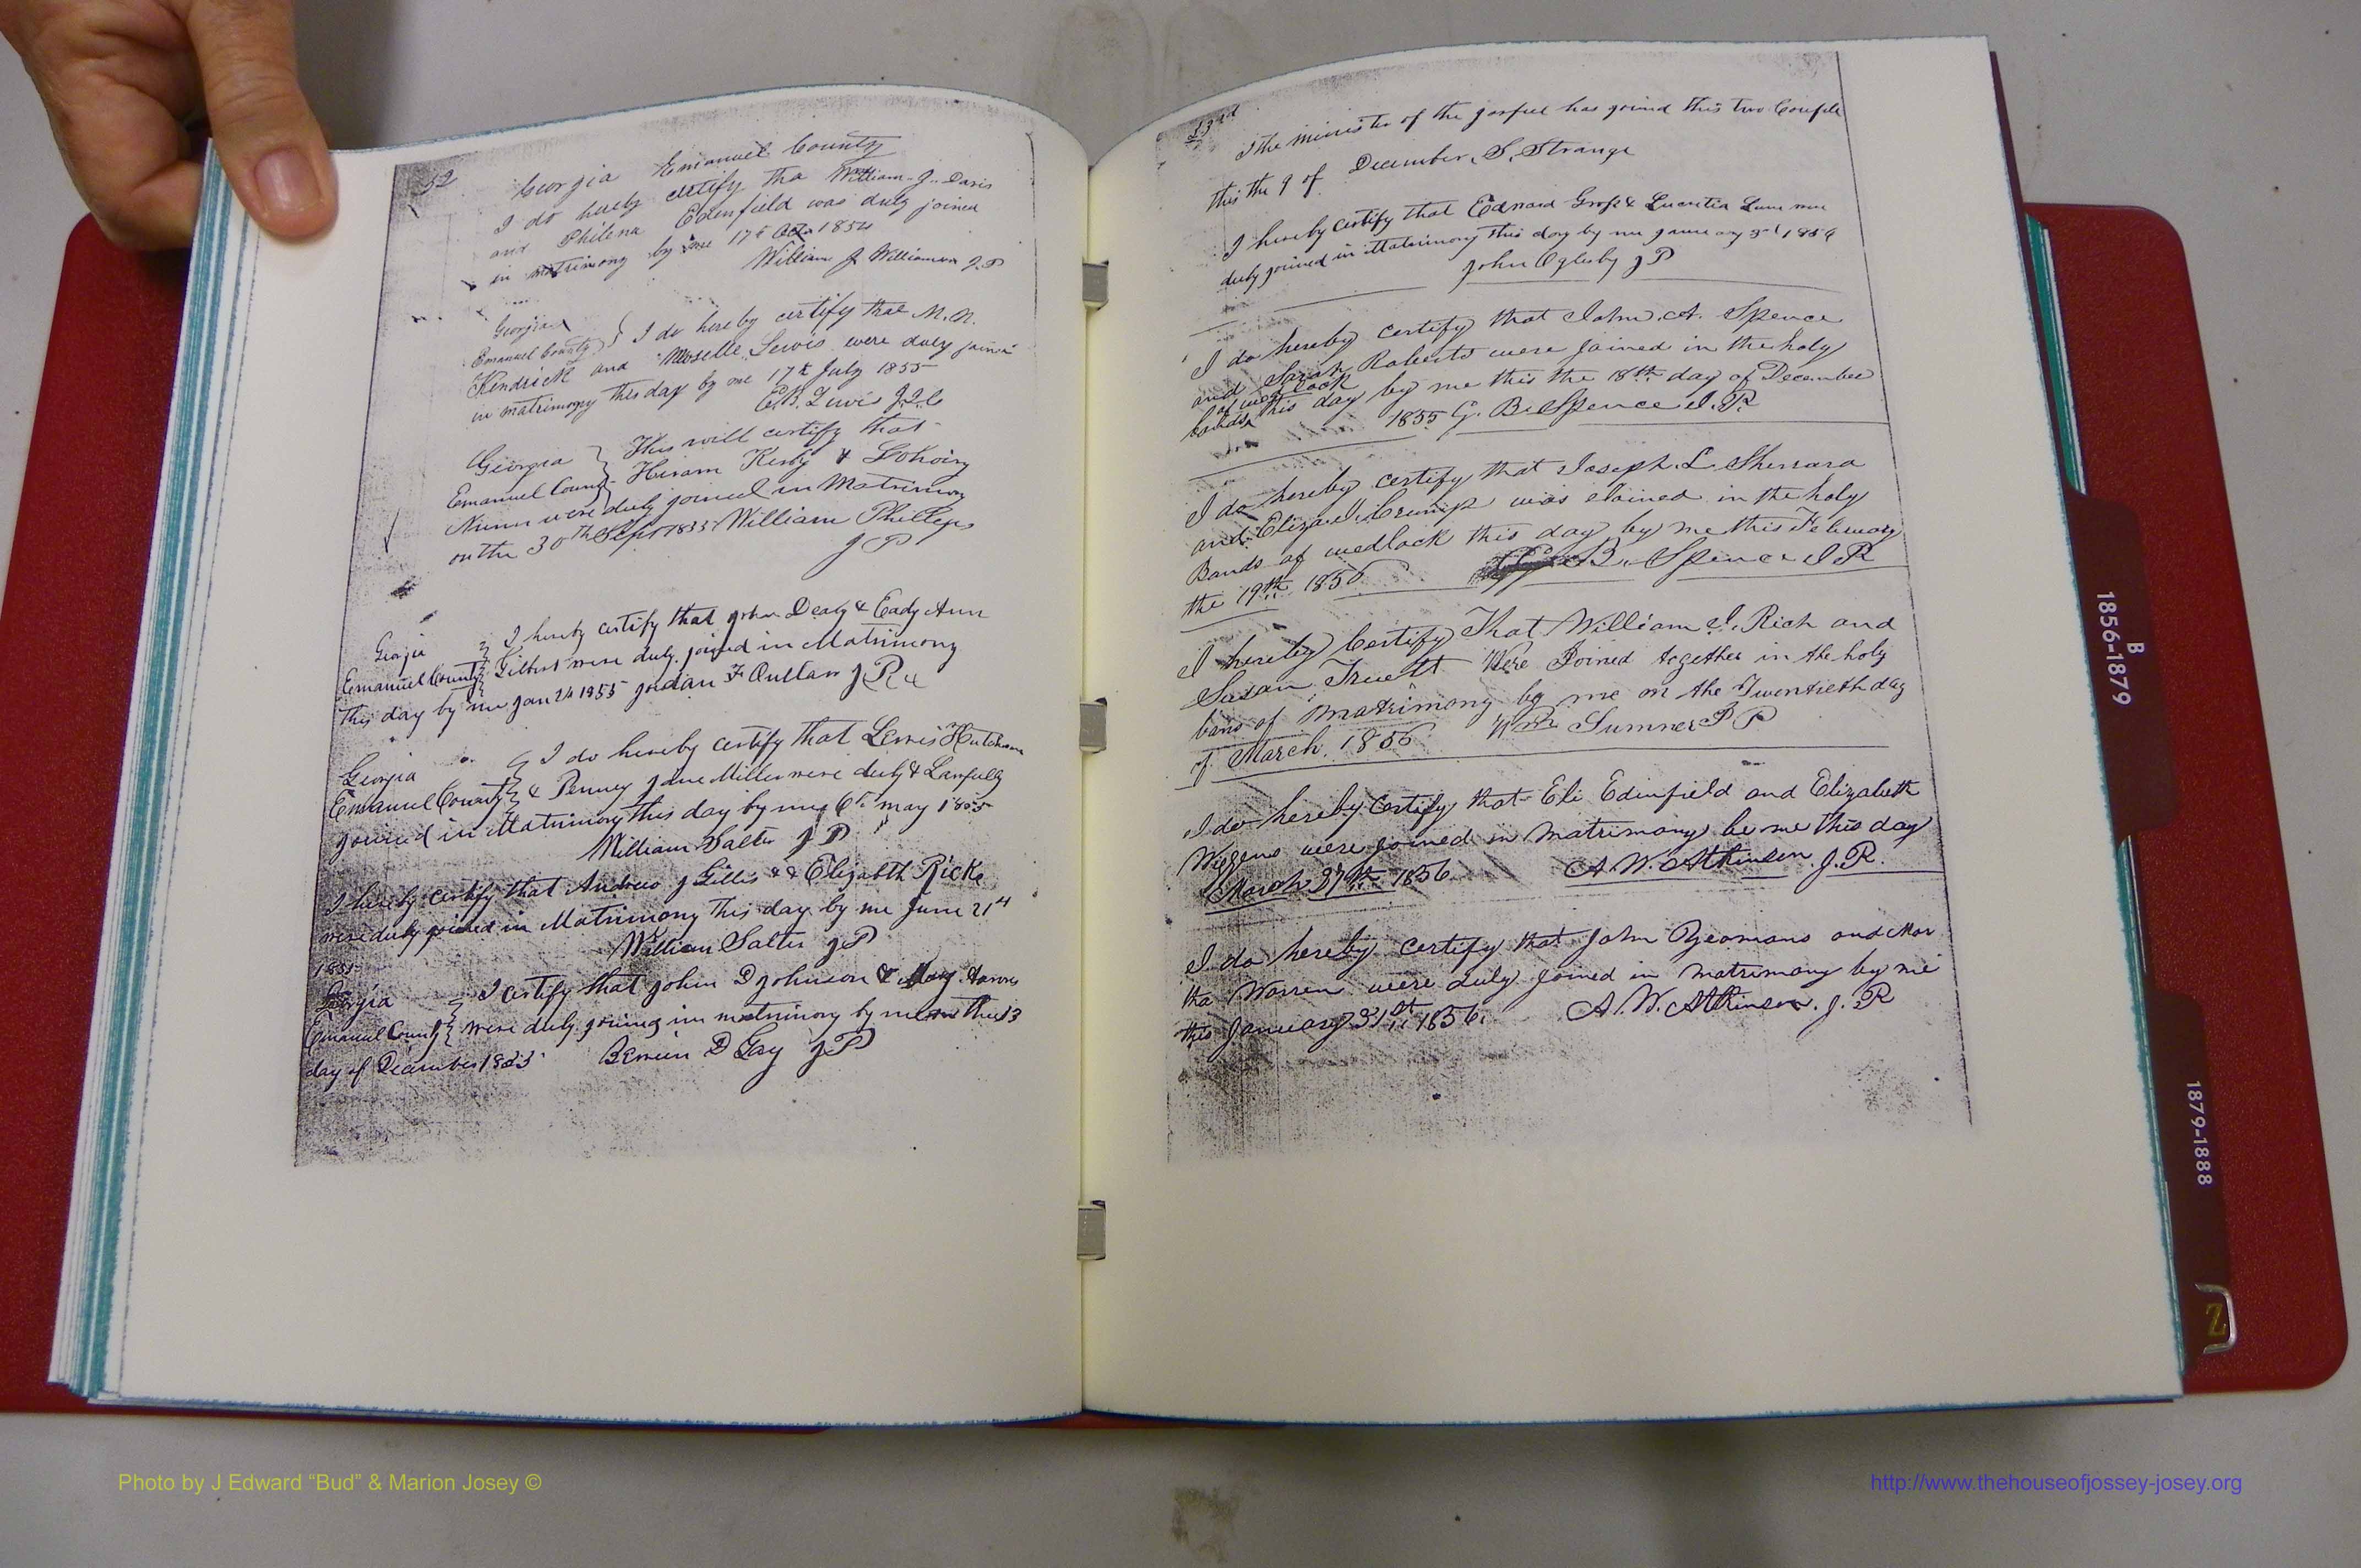 52
Georgia Emanuel County
I do hereby certify tha William J. Davis
and Philena Edenfield was duly joined
in matrimony by me 17th 1854
William J Williamson J.P
Georgia
Emanuel County } I do hereby certify that M. N.
Kendrick and Moselle Lewis were duly joined
in matrimony this day by me 17th July 1855
E.B. Lewis J.I.C
Georgia } This will certify that
Emanuel County Hiram Kirby &
Nunn were duly joined in Matrimony
on the 30th Sept William Phillips
J P
Georgia } I hereby certify that John Deary & Eady Ann
Emanuel County were duly joined in Matrimony
this day by me Jan 24 1855 Jordan F Outlaw J P
Georgia } I do hereby certify that Lewis
Emanuel County & Penney Jane Miller were duly & Lawfully
joined in Matrimony this day by me 6th may 1855
William Salter J P
I hereby certify that Andrew J Gillis & & Elizabth Ricks
were duly joined in Matrimony This day by me June 21st
1855
William Salter J P
Georgia } I certify that John D Johnson &
Emanuel County were duly joined in matrimony by me this 13
day of December D Gay J P
I the minister of the has joind this two Couple
this the 9 of December, S, Strange
I hereby certify that Edward & were
duly joined in Matrimony this day by me January 3d 1856
John Oglesby J P
I do hereby certify that John A. Spence
and Sarah Roberts were joined in the holy
of wed lock
bands this day by me this the 18th day of December
1855 G. B. Spence J. P.
I do hereby certify that Joseph L.
and was in the holy
Bands of wedlock this day by me this February
the 19th 1856 B. Spence J P
I hereby Certify That William J. Rich and
Susan Truett Were Joined together in the holy
bans of Matrimony by me on the Twentieth day
of March, 1856 Wm Sumner J P
I do hereby Certify that Eli Edinfield and Elizabeth
were joined in matrimony be me this day
March 27th 1856 A. W. Atkinson J. P.
I do hereby certify that John Yeomans and Mar
tha Warren were duly joined in matrimony by me
this January 31st 1856. A. W. Atkinson. J. P
B
1856-1879
1879-1888
Z
Photo by J Edward “Bud” & Marion Josey ©
http://www.thehouseofjossey-josey.org